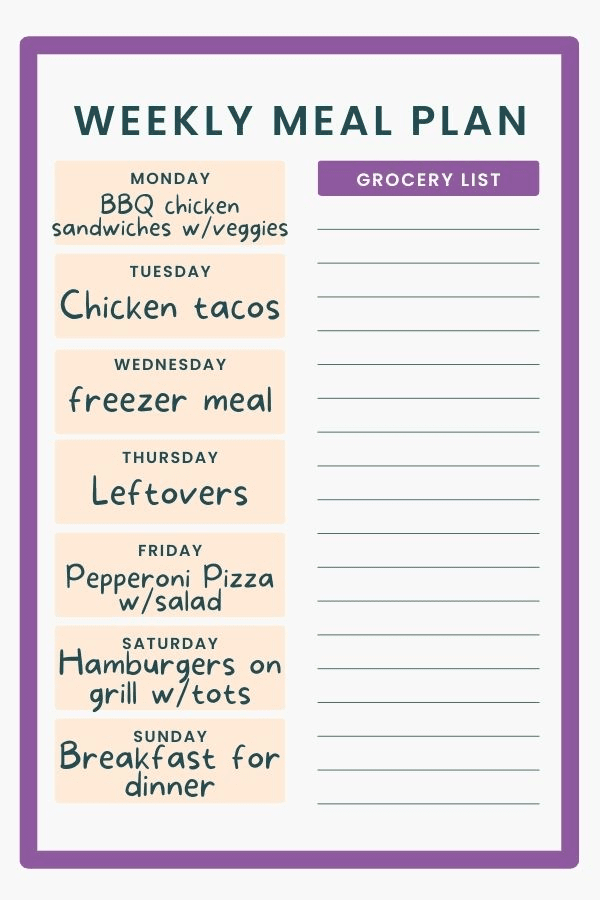 WEEKLY MEAL PLAN
MONDAY
BBQ chicken
sandwiches w/veggies
TUESDAY
Chicken tacos
WEDNESDAY
freezer meal
THURSDAY
Leftovers
FRIDAY
Pepperoni Pizza
w/salad
SATURDAY
Hamburgers on
grill w/tots
SUNDAY
Breakfast for
dinner
GROCERY LIST